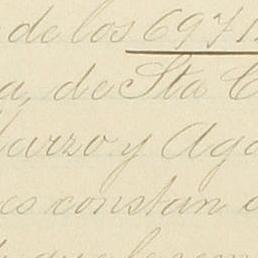 de los 6971
a, de Sta C
Marzo y Ago
es constan